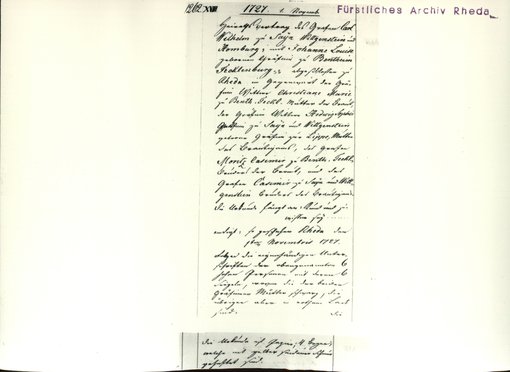 1262 XVIII 1727. 1. Novemb. Fürstliches Archiv Rheda
Heiratsvertrag des Grafen Carl
Wilhelm zu Sayn Witgenstein und
Homburg, mit Johanna Louise
geborene Gräfin zu Bentheim
Tecklenburg, abgeschlossen zu
Rheda in Gegenwart der Grä-
fin Wittwe Christiane Marie
zu Benth. Teckl. Mutter der Braut,
der Gräfin Wittwe Hedwig Sophie
Gräfin zu Sayn und Witgenstein
geborene Gräfin zur Lippe, Mutter
des Bräutigams, des Grafen
Moritz Casimir zu Benth. Teckl.
Bruders der Braut, und des
Grafen Casimir zu Sayn und Witt-
genstein Bruders des Bräutigams
Die Urkunde fängt an: Kund und zu
wissen sey
endigt: so geschehen Rheda den
1ten Novembris 1727.
folgen die eigenhändigen Unter-
schriften der obengenannten 6
hohen Personen mit deren 6
Siegeln, wovon die der beiden
Gräfinnen Mütter schwarz, die
übrigen aber in rothem Lack
sind. Die
die Urkunde ist
welche mit gelber seidener Schnur
geheftet sind.